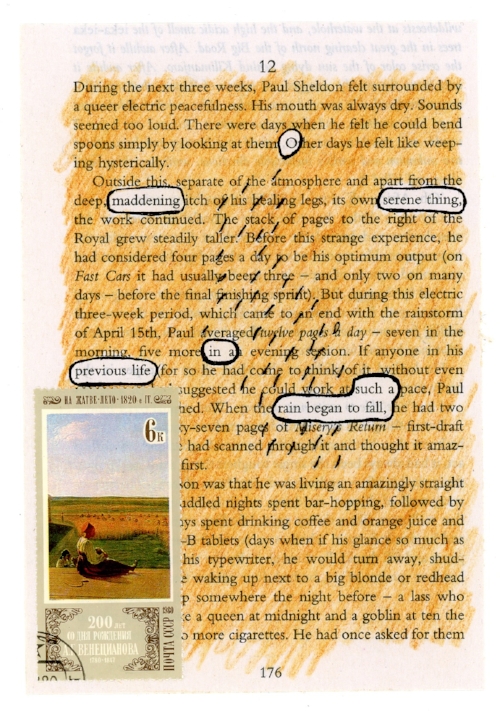 12
During the next three weeks, Paul Sheldon felt surrounded by
a queer electric peacefulness. His mouth was always dry. Sounds
seemed too loud. There were days when he felt he could bend
spoons simply by looking at them. Other days he felt like weep-
ing hysterically.
Outside this, separate of the atmosphere and apart from the
deep, maddening itch of his healing legs, its own serene thing,
the work continued. The stack of pages to the right of the
Royal grew steadily taller. Before this strange experience, he
had considered four pages a day to be his optimum output (on
Fast Cars it had usually been three – and only two on many
days – before the final finishing sprint). But during this electric
three-week period, which came to an end with the rainstorm
of April 15th, Paul averaged twelve pages a day – seven in the
morning, five more in an evening session. If anyone in his
previous life (for so he had come to think of it, without even
suggested he could work at such a pace, Paul
ned. When the rain began to fall, he had two
ty-seven pages of Misery's Return – first-draft
had scanned through it and thought it amaz-
first.
son was that he was living an amazingly straight
uddled nights spent bar-hopping, followed by
ys spent drinking coffee and orange juice and
-B tablets (days when if his glance so much as
his typewriter, he would turn away, shud-
e waking up next to a big blonde or redhead
p somewhere the night before – a lass who
e a queen at midnight and a goblin at ten the
o more cigarettes. He had once asked for them
176
НА ЖАТВЕ·ЛЕТО·1820-е ГГ.
6к
200 лет
СО ДНЯ РОЖДЕНИЯ
А.Г. ВЕНЕЦИАНОВА
1780-1847
ПОЧТА СССР
1980